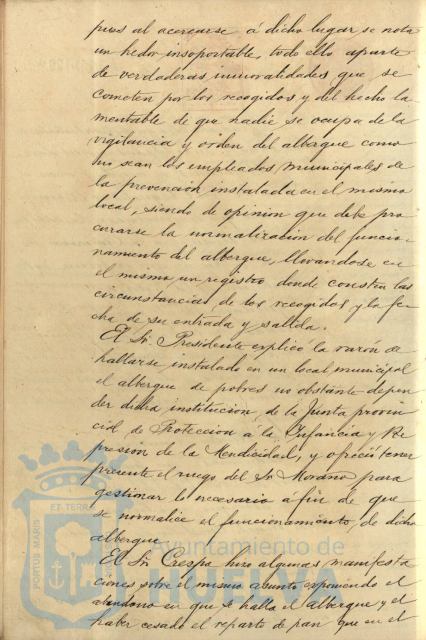 pues al acercarse á dicho lugar se nota
un hedor insoportable, todo ello aparte
de verdaderas inmoralidades que se
cometen por los recogidos y del hecho la
mentable de que nadie se ocupa de la
vigilancia y orden del albergue como
no sean los empleados municipales de
la prevención instalada en el mismo
local, siendo de opinion que debe pro
curarse la normalizacion del funcio-
namiento del albergue, llevandose en
el mismo un registro donde consten las
circunstancias de los recogidos y la fe
cha de su entrada y salida.
El Sr. Presidente explicó la razón de
hallarse instalado en un local municipal
el albergue de pobres no obstante depen
der dicha institucion, de la Junta provin
cial de Proteccion á la Infancia y Re
presión de la Mendicidad, y ofreció tener
presente el ruego del Sr. Morano para
gestionar lo necesario a fin de que
se normalice el funcionamiento de dicho
albergue.
El Sr. Crespo hizo algunas manifesta
ciones sobre el mismo asunto exponiendo el
abandono en que se halla el albergue y el
haber cesado el reparto de pan que en el
PORTUS MARIS ET TERRAE
Ayuntamiento de